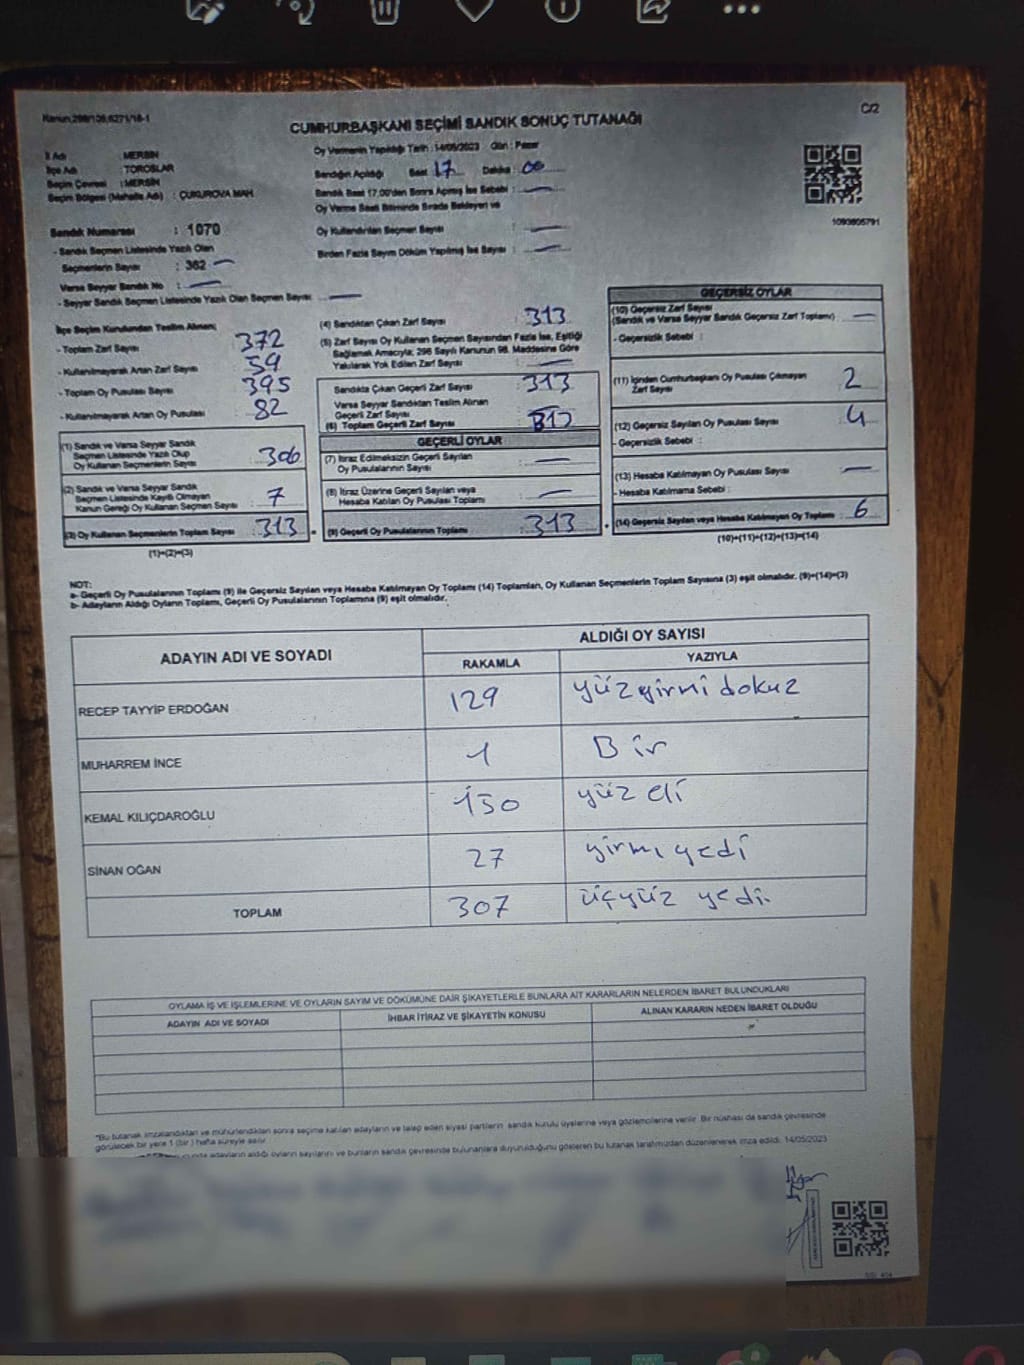 Kanun:298/105,6271/16-1
C/2
CUMHURBAŞKANI SEÇİMİ SANDIK SONUÇ TUTANAĞI
İl Adı : MERSİN
İlçe Adı : TOROSLAR
Seçim Çevresi : MERSİN
Seçim Bölgesi (Mahalle Adı) : ÇUKUROVA MAH
Oy Vermenin Yapıldığı Tarih : 14/05/2023 Gün : Pazar
Sandığın Açıldığı Saat : 17 Dakika : 00
Sandık Saat 17.00'den Sonra Açılmış İse Sebebi : —
Oy Verme Saati Bitiminde Sırada Bekleyen ve
Oy Kullandırılan Seçmen Sayısı : —
Birden Fazla Sayım Döküm Yapılmış İse Sayısı : —
1090805791
Sandık Numarası : 1070
- Sandık Seçmen Listesinde Yazılı Olan
Seçmenlerin Sayısı : 362 —
Varsa Seyyar Sandık No : —
- Seyyar Sandık Seçmen Listesinde Yazılı Olan Seçmen Sayısı : —
İlçe Seçim Kurulundan Teslim Alınan;
- Toplam Zarf Sayısı : 372
- Kullanılmayarak Artan Zarf Sayısı : 59
- Toplam Oy Pusulası Sayısı : 395
- Kullanılmayarak Artan Oy Pusulası : 82
(1) Sandık ve Varsa Seyyar Sandık
Seçmen Listesinde Yazılı Olup
Oy Kullanan Seçmenlerin Sayısı : 306
(2) Sandık ve Varsa Seyyar Sandık
Seçmen Listesinde Kayıtlı Olmayan
Kanun Gereği Oy Kullanan Seçmen Sayısı : 7
(3) Oy Kullanan Seçmenlerin Toplam Sayısı : 313
(1)+(2)=(3)
(4) Sandıktan Çıkan Zarf Sayısı : 313
(5) Zarf Sayısı Oy Kullanan Seçmen Sayısından Fazla İse, Eşitliği
Sağlamak Amacıyla; 298 Sayılı Kanunun 98. Maddesine Göre
Yakılarak Yok Edilen Zarf Sayısı : —
Sandıkta Çıkan Geçerli Zarf Sayısı : 313
Varsa Seyyar Sandıktan Teslim Alınan
Geçerli Zarf Sayısı : —
(6) Toplam Geçerli Zarf Sayısı : 313
GEÇERLİ OYLAR
(7) İtiraz Edilmeksizin Geçerli Sayılan
Oy Pusulalarının Sayısı : —
(8) İtiraz Üzerine Geçerli Sayılan veya
Hesaba Katılan Oy Pusulası Toplamı : —
(9) Geçerli Oy Pusulalarının Toplamı : 313
GEÇERSİZ OYLAR
(10) Geçersiz Zarf Sayısı
(Sandık ve Varsa Seyyar Sandık Geçersiz Zarf Toplamı) : —
- Geçersizlik Sebebi :
(11) İçinden Cumhurbaşkanı Oy Pusulası Çıkmayan
Zarf Sayısı : 2
(12) Geçersiz Sayılan Oy Pusulası Sayısı : 4
- Geçersizlik Sebebi :
(13) Hesaba Katılmayan Oy Pusulası Sayısı : —
- Hesaba Katılmama Sebebi :
(14) Geçersiz Sayılan veya Hesaba Katılmayan Oy Toplamı : 6
(10)+(11)+(12)+(13)=(14)
NOT:
a- Geçerli Oy Pusulalarının Toplamı (9) ile Geçersiz Sayılan veya Hesaba Katılmayan Oy Toplamı (14) Toplamları, Oy Kullanan Seçmenlerin Toplam Sayısına (3) eşit olmalıdır. (9)+(14)=(3)
b- Adayların Aldığı Oyların Toplamı, Geçerli Oy Pusulalarının Toplamına (9) eşit olmalıdır.
ADAYIN ADI VE SOYADI
ALDIĞI OY SAYISI
RAKAMLA YAZIYLA
RECEP TAYYİP ERDOĞAN 129 yüzyirmi dokuz
MUHARREM İNCE 1 Bir
KEMAL KILIÇDAROĞLU 150 yüz elli
SİNAN OĞAN 27 yirmi yedi
TOPLAM 307 üçyüz yedi.
OYLAMA İŞ VE İŞLEMLERİNE VE OYLARIN SAYIM VE DÖKÜMÜNE DAİR ŞİKAYETLERLE BUNLARA AİT KARARLARIN NELERDEN İBARET BULUNDUKLARI
ADAYIN ADI VE SOYADI İHBAR İTİRAZ VE ŞİKAYETİN KONUSU ALINAN KARARIN NEDEN İBARET OLDUĞU
"Bu tutanak imzalandıktan ve mühürlendikten sonra seçime katılan adayların ve talep eden siyasi partilerin sandık kurulu üyelerine veya gözlemcilerine verilir. Bir nüshası da sandık çevresinde
görülecek bir yere 1 (bir) hafta süreyle asılır.
adayların aldığı oyların sayılarını ve bunların sandık çevresinde bulunanlara duyurulduğunu gösteren bu tutanak tarafımızdan düzenlenerek imza edildi. 14/05/2023